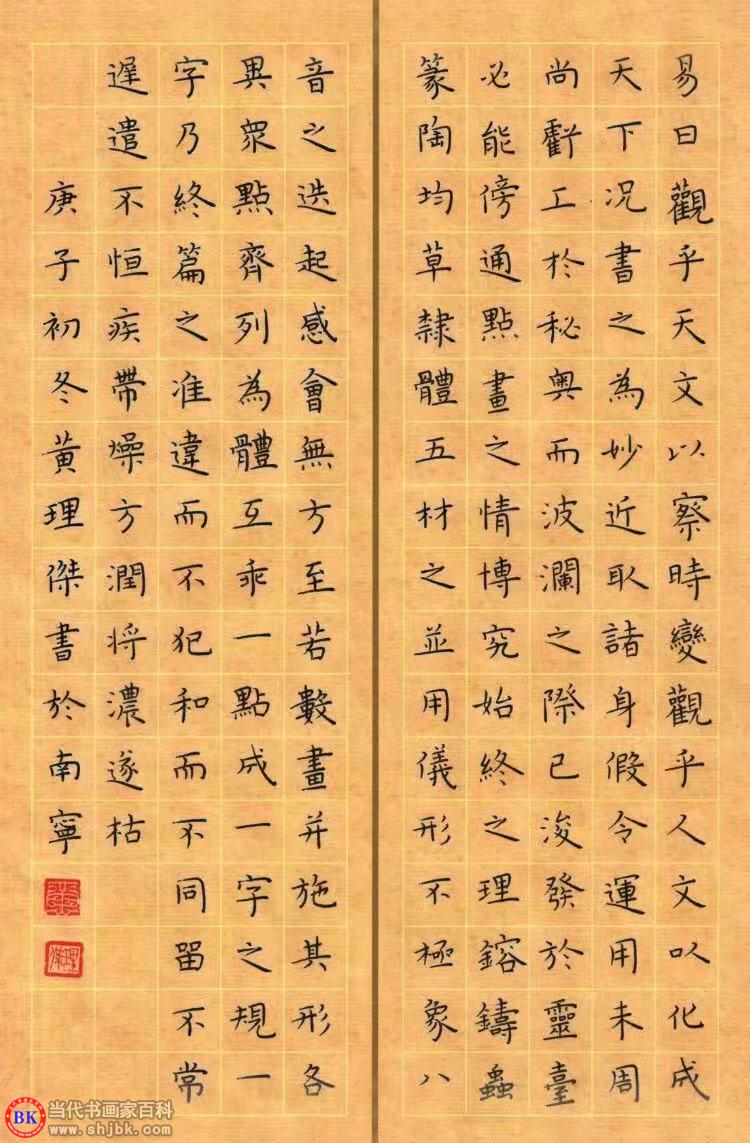 易曰觀乎天文以察時變觀乎人文以化成
天下况書之為妙近取諸身假令運用未周
尚虧工於秘奥而波瀾之際已浚發於靈臺
必能傍通點畫之情博究始終之理鎔鑄蟲
篆陶均草隸體五材之並用儀形不極象八
音之迭起感會無方至若數畫并施其形各
異眾點齊列為體互乖一點成一字之規一
字乃終篇之准違而不犯和而不同留不常
遲遣不恒疾帶燥方潤将濃遂枯
庚子初冬黃理傑書於南寧
BK
当代书画家百科
www.shjbk.com